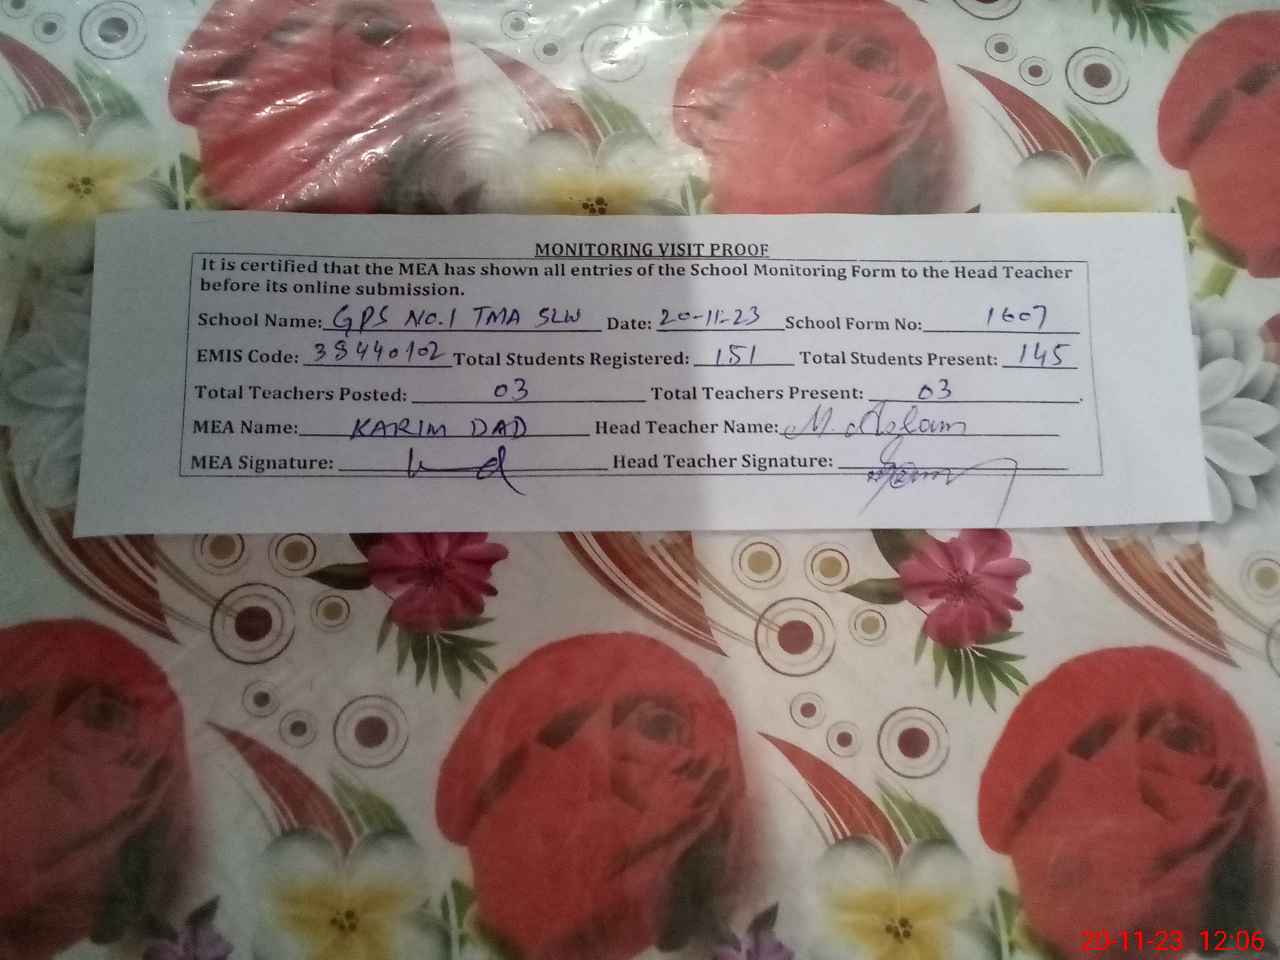 MONITORING VISIT PROOF
It is certified that the MEA has shown all entries of the School Monitoring Form to the Head Teacher
before its online submission.
School Name: GPS NO.1 TMA SLW Date: 20-11-23 School Form No: 1607
EMIS Code: 38440102 Total Students Registered: 151 Total Students Present: 145
Total Teachers Posted: 03 Total Teachers Present: 03
MEA Name: KARIM DAD Head Teacher Name: M. Aslam
MEA Signature: Head Teacher Signature:
20-11-23 12:06